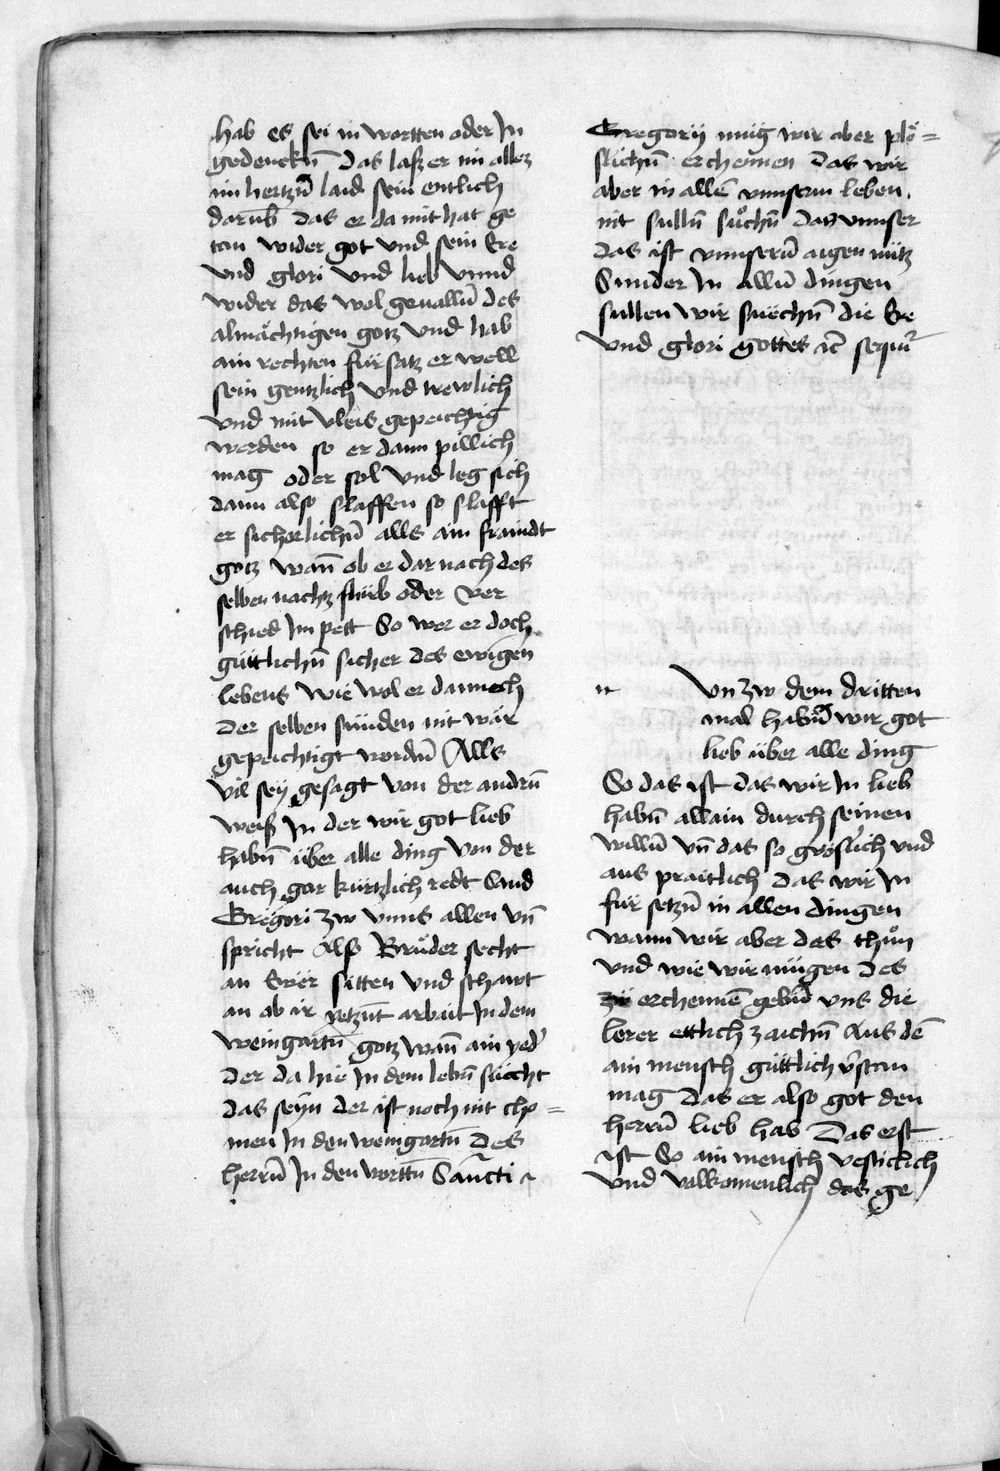 hab es sei in wortten oder In
gedenckn̄ Das lasz er im allez
ain hertzn̄ laid sein entlich
darūb Das er da mit hat ge
tan wider got vnd sein Ere
vnd glori vnd lieb vnnd
wider das wolgeualln̄ des
almächtigen gotz vnd hab
ain rechten fürsatz er well
sein gentzlich vnd trewlich
vnd mit vleis gepeichtig
werden so er dann pillich
mag oder sol vnd leg sich
dann also slaffen so slafft
er sicherlichn̄ alls ain fraindt
gotz wan̄ ob er dar nach des
selben nachtz stürb oder ver
schied Im pett So wer er doch
güttlichn̄ sicher des ewigen
lebens wie wol er dannoch
der selben sünden nit wär
gepeichtigt wordn̄ Alls
vil sey gesagt von der andrn̄
weiß In der wir got lieb
habn̄ über alle ding von der
auch gar kürtzlich redt Sand
Gregori zw vnns allen vn̄
spricht Also Brüder secht
an Ewer sitten vnd schawt
an ob ir yetzūt arbait In dem
weingartn̄ gotz wan̄ ain yed̄
der da hie In dem lebn̄ süecht
das seyn der ist noch nit cho=
men In den weingartn̄ Des
herrn̄ In den worttn̄ Sancti
Gregorij müg wir aber plö=
slichn̄ erchennen Das wir
aber in allē vnnserm leben
nit sulln̄ süchn̄ Das vnnser
das ist vnnsern̄ aigen nütz
Sunder In alln̄ dingen
sullen wir suechn̄ die Ere
vnd glori gottes ꝛc̄ sequr̄
Vn zw dem dritten
mal habn̄ wir got
lieb über alle ding
So das ist das wir In lieb
habn̄ allain durch seinen
willn̄ vn̄ das so gröslich vnd
aus praitlich Das wir In
für setzn̄ in allen dingen
wann wir aber das thün
vnd wie wir mügen des
zü erchennē gebn̄ vns die
lerer ettlich zaichn̄ Aus dē
ain mensch güttlich v̄stan
mag Das er also got den
herrn̄ lieb hab Das erst
ist So ain mensch vesticlich
vnd volkomenlich das ge